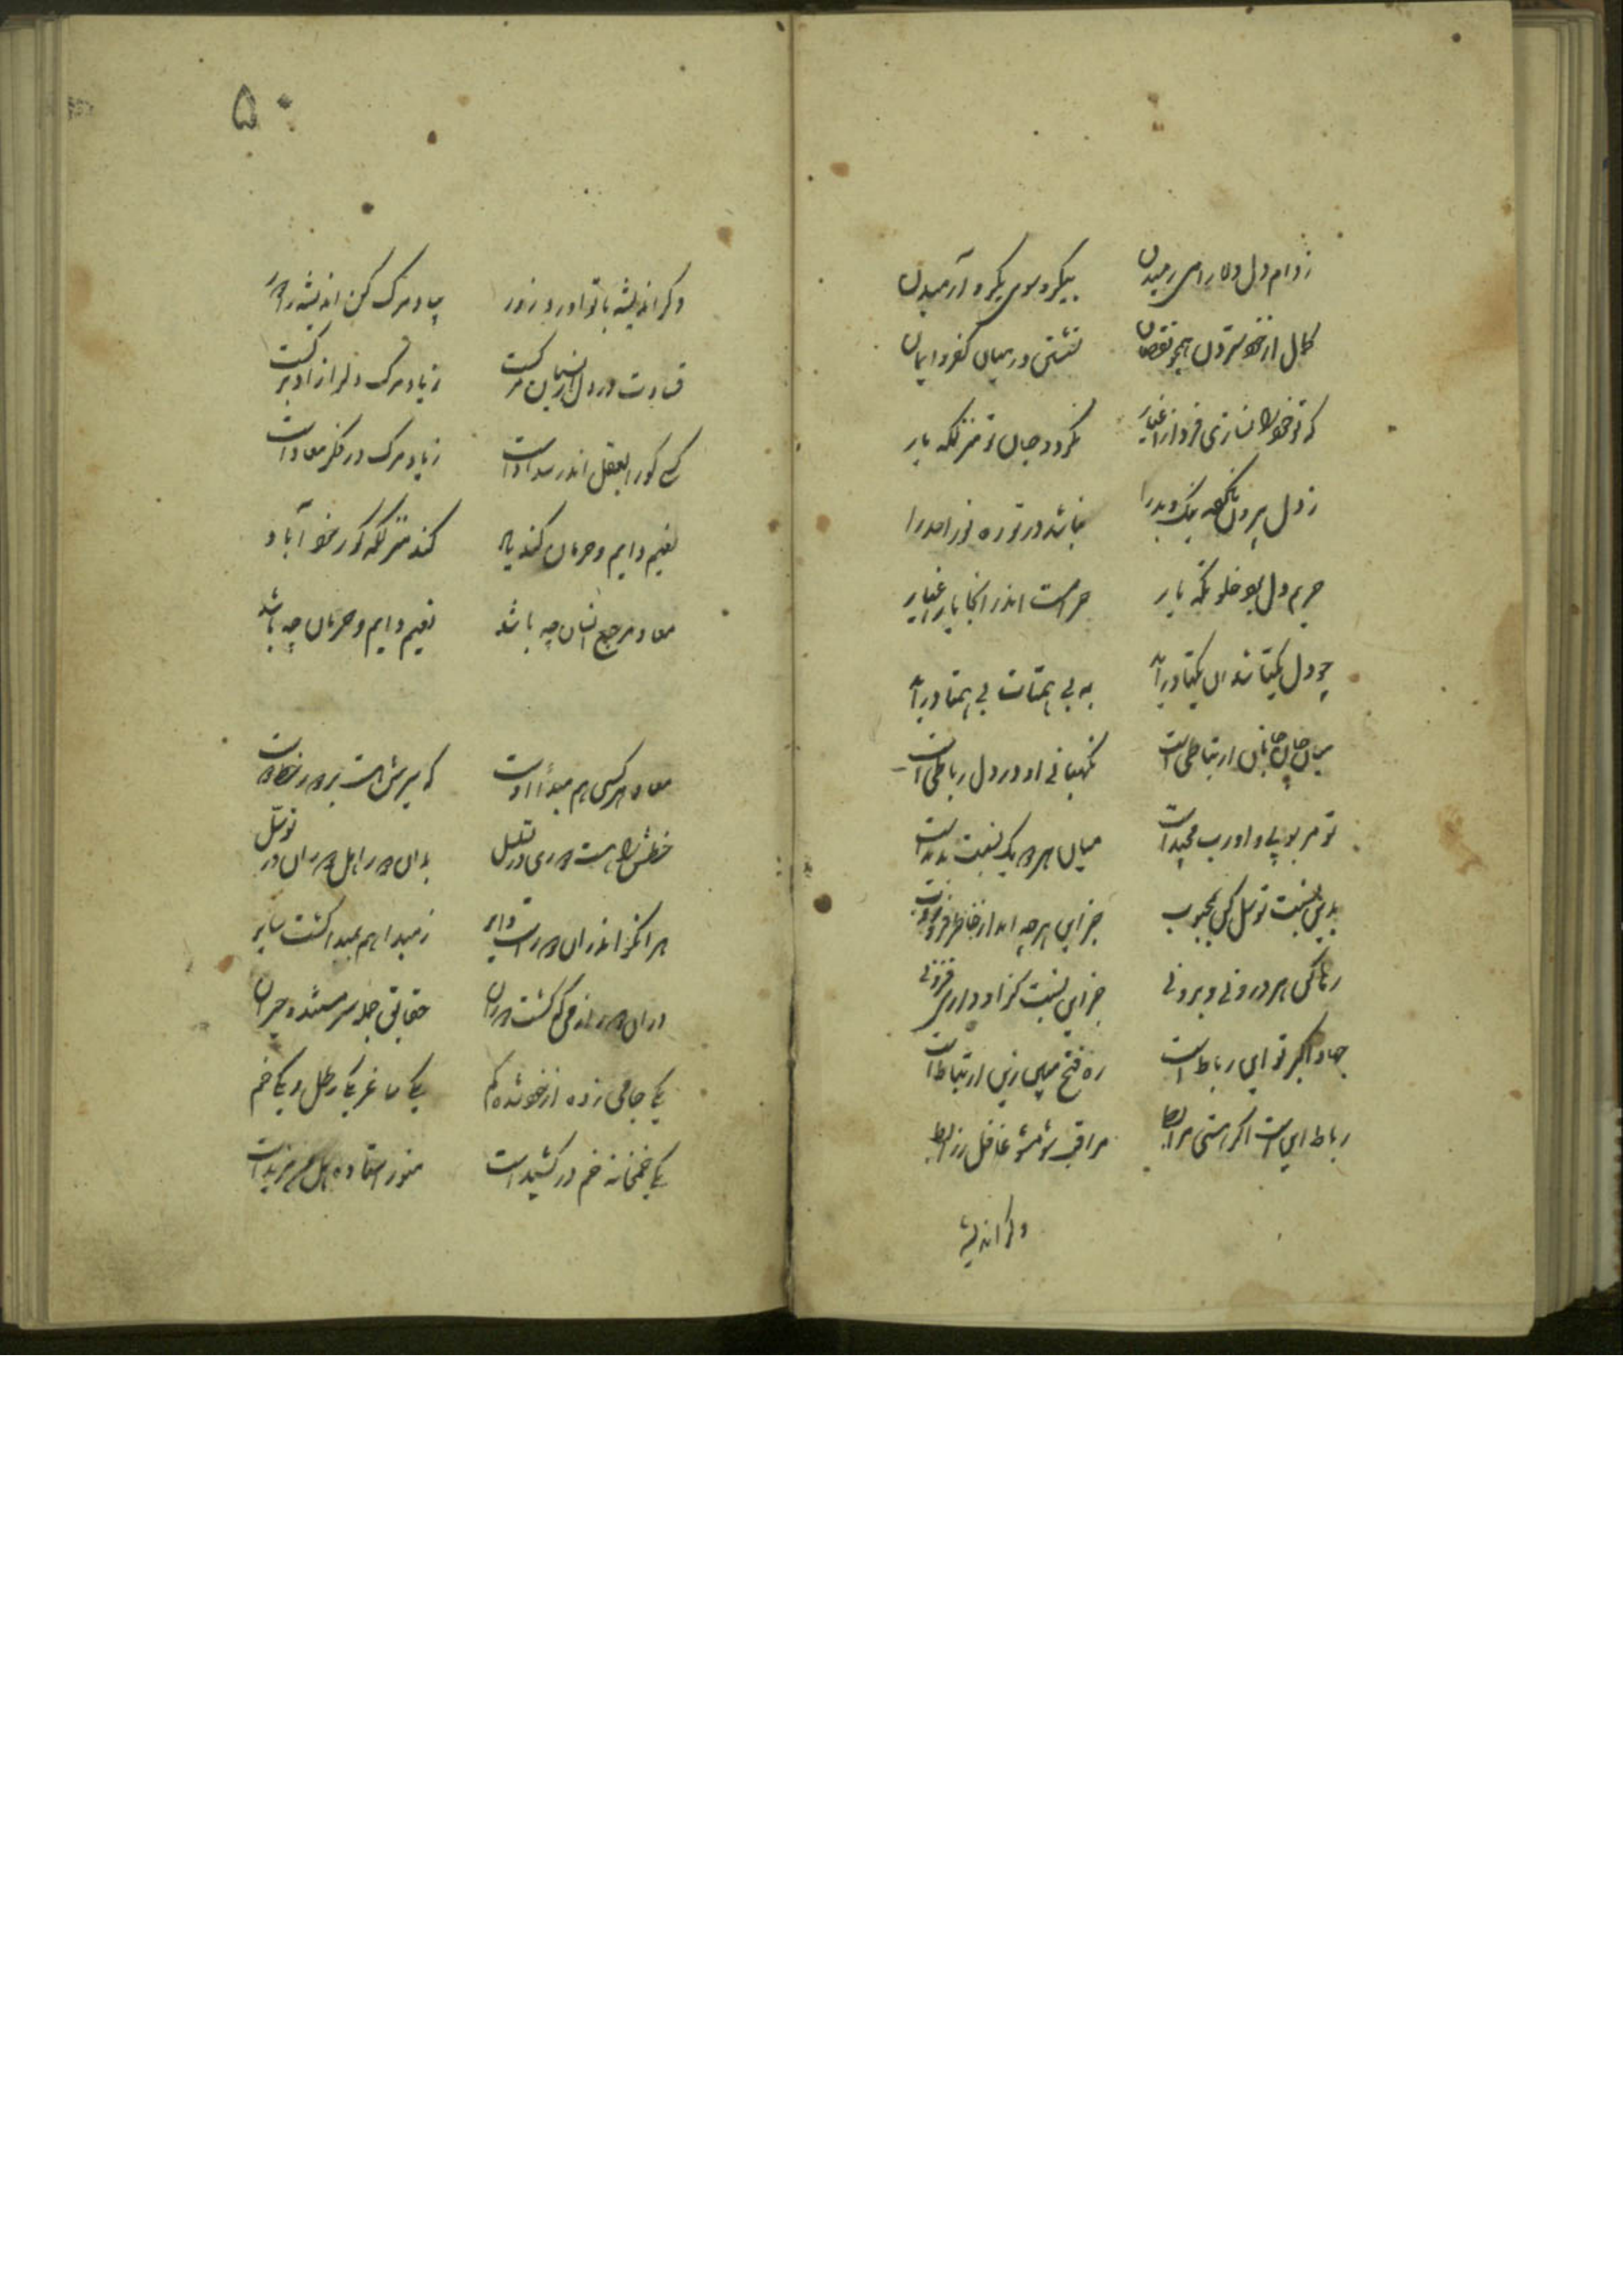 ز دام دل دلارامی رمیدن بیکرو سوی یکرو آرمیدن
کمال از خود ستردن همچو نقصان نشستی در میان کفر و ایمان
که تو خود را نسازی فرد از اغیار نگردد جان تو منزلگه یار
ز دل بیرون نیک و بد را نباشد در تو ره نور احد را
حریم دل بود خلوتگه یار حرامست اندر آنجا بار اغیار
چو دل یکتا شد آن یکتا درآید به بی همتات بی همتا درآید
میان جان و جانان ارتباطی است نگهبانی او در دل رباطی است
تو مربوبی و او رب مجید است میان هر دو یک نسبت پدید است
بدین نسبت توسل کن بمحبوب جز این هرچه آید از خاطر فرو روب
رها کن هر درونی و برونی جز این نسبت کز او داری فزونی
جهاد اکبر تو این رباط است ره فتح مبین زین ارتباط است
رباط این است اگر هستی مرابط مراقب شو مشو غافل ز رابط
وگر اندیشه
۵۰
وگر اندیشه با تو آورد زور بیاد مرگ کن اندیشه را دور
قساوت در دل از نسیان مرگ است ز یاد مرگ دل را زاد و برگ است
کسی کو را بعقل اندر سداد است ز یاد مرگ در فکر معاد است
نعیم دایم و حرمان کند یاد کند منزلگه گور خود آباد
معاد و مرجع انسان چه باشد نعیم دایم و حرمان چه باشد
معاد هر کسی هم مبدأ اوست که سیرش هست بر دور خط دوست
بدان دور اهل دوران در توسل
هر آنکو اندر آن دور است دایر ز مبدا هم بمبدا گشت سایر
در آن دور از می گشت دوران حقایق جمله سرمست و حیران
یکی جامی زده از خود شده گم یکی ساغر یکی رطل و یکی خم
یکی خمخانه خم در کشیده است هنوز استاده هل من مزید است